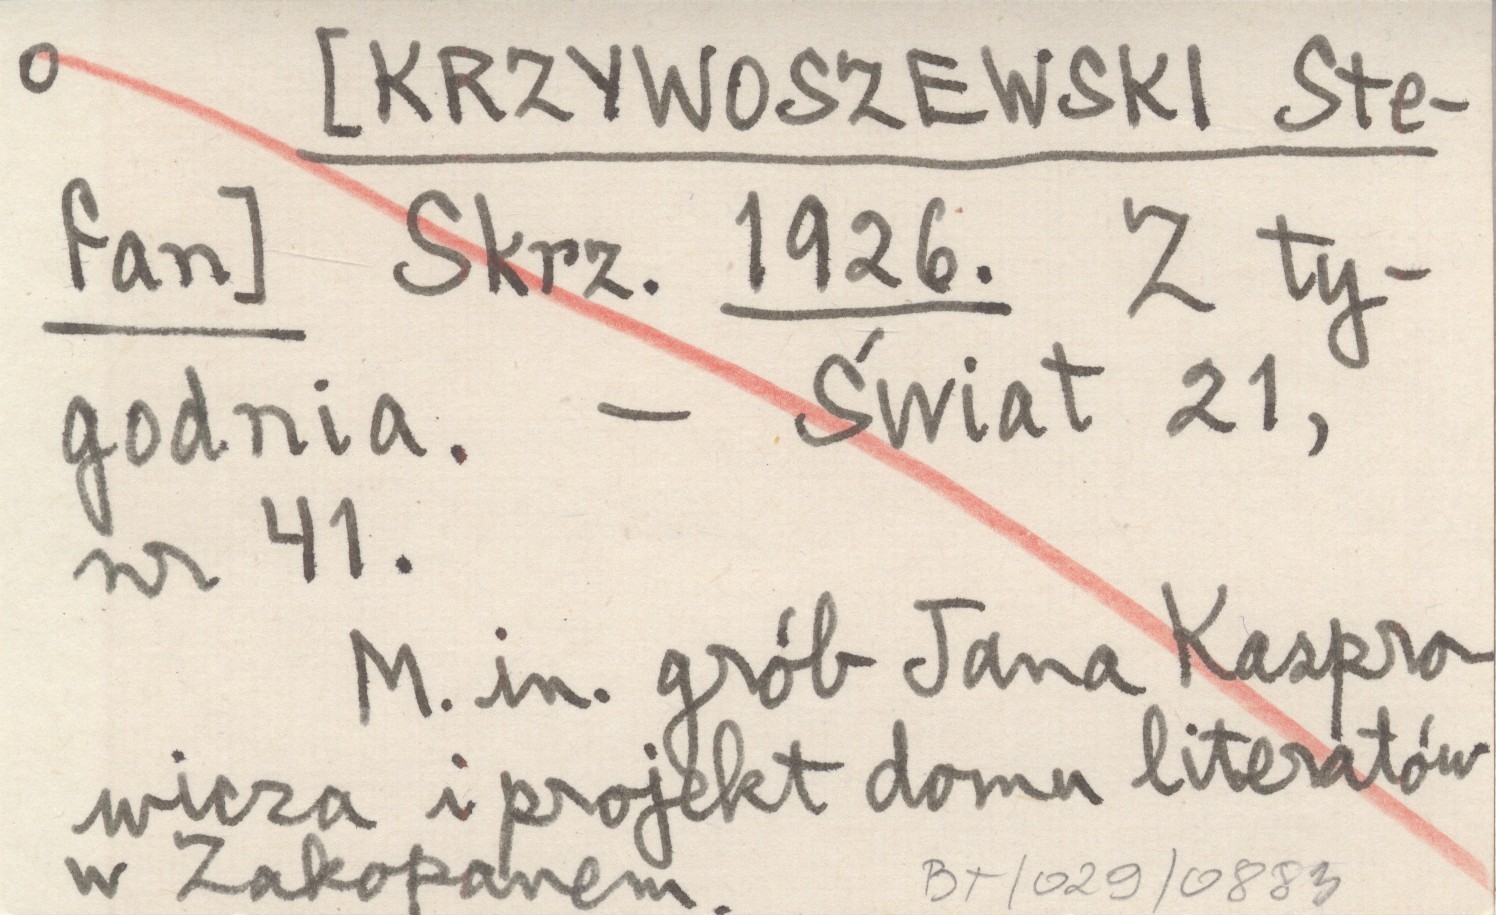 o [KRZYWOSZEWSKI Ste-
fan] Skrz. 1926. Z ty-
godnia. – Świat 21,
nr 41.
M. in. grób Jana Kaspro
wicza i projekt domu literatów
w Zakopanem.
BT/029/0883